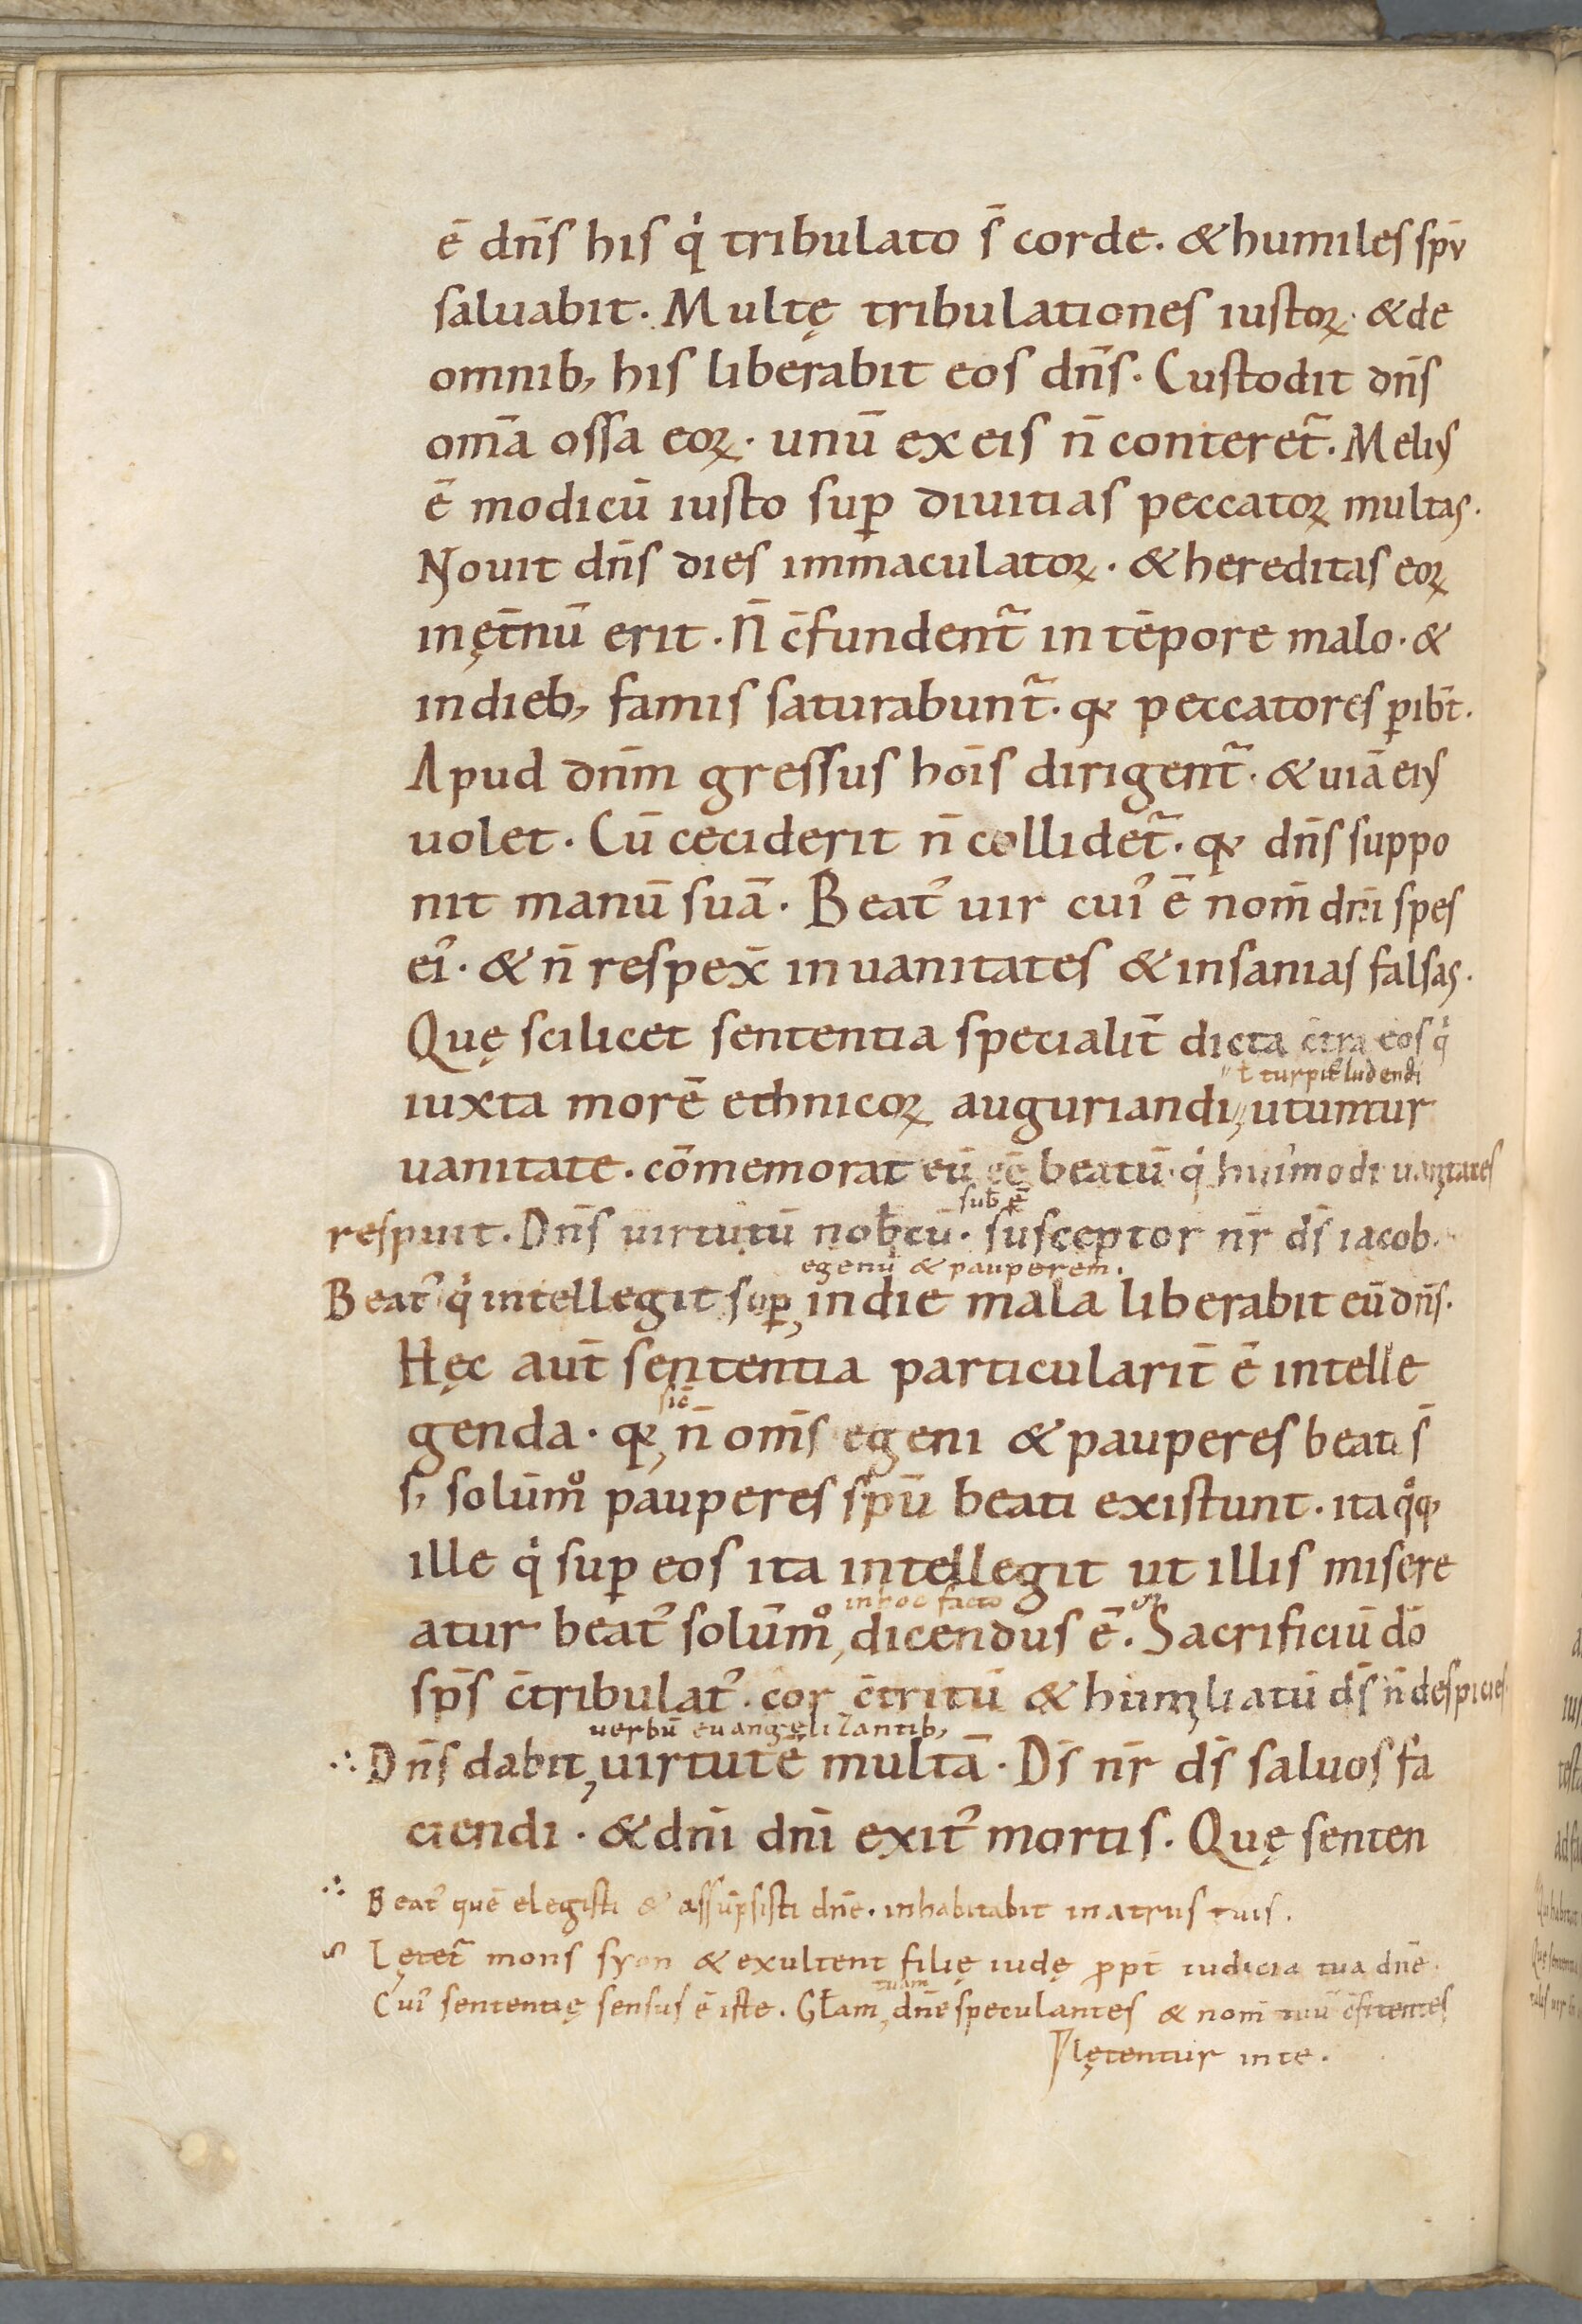 ē dn̄s his qͥ tribulato s̄ corde. & humiles sp̄u
saluabit. Multę tribulationes iustoꝝ. & de
omnib; his liberabit eos dn̄s. Custodit dn̄s
om̄a ossa eoꝝ. unū ex eis n̄ conteret᷑. Meliꝰ
ē modicū iusto suꝑ diuitias peccatoꝝ multas.
Nouit dn̄s dies immaculatoꝝ. & hereditas eoꝝ
in ęt̄nū erit. N̄ c̄fundent᷑ in tēpore malo. &
in dieb; famis saturabunt᷑. qꝛ peccatores ꝑibt̄.
Apud dn̄m gressus hoīs dirigent᷑. & uiā eiꝰ
uolet. Cū ceciderit n̄ collidet᷑. qꝛ dn̄s suppo
nit manū suā. Beatꝰ uir cuiꝰ ē nom̄ dn̄i spes
eiꝰ. & n̄ respex̄ in uanitates & insanias falsas.
Quę scilicet sententia specialit̄ dicta c̄tra eos qͥ
ł turpit̄ ludendi
iuxta morē ethnicoꝝ auguriandi, utuntur
uanitate. cōmemorat eū eē beatū. qͥ huiꝰmodi uanitates
sub̄ ē
respuit. Dn̄s uirtutū nob̄cū. susceptor nr̄ ds̄ iacob.
egenū & pauperem.
Beatꝰ qͥ intellegit suꝑ, in die mala liberabit eū dn̄s.
Hęc aut̄ sententia particularit̄ ē intelle
sic̄
genda. qꝛ, n̄ om̄s egeni & pauperes beati s̄
s; solūmͦ pauperes sp̄ū beati existunt. ita qͦq;
ille qͥ suꝑ eos ita intellegit ut illis misere
in hoc facto
atur beatꝰ solūmͦ, dicendus ē. Sacrificiū dō
sp̄s c̄tribulatꝰ. cor c̄tritū & humiliatū ds̄ n̄ despicies
uerbū euangelizantib;
∴ Dn̄s dabit, uirtutē multā. Ds̄ nr̄ ds̄ saluos fa
ciendi. & dn̄i dn̄i exitꝰ mortis. Quę senten
∴ Beatꝰ quē elegisti & assūpsisti dn̄e. inhabitabit in atriis tuis.
Lętet᷑ mons syon & exultent filię iudę ꝓpt̄ iudicia tua dn̄e.
tuam
Cuiꝰ sententię sensus ē iste. Gl̄am, dn̄e speculantes & nom̄ tuū c̄fitentes
lętentur in te.